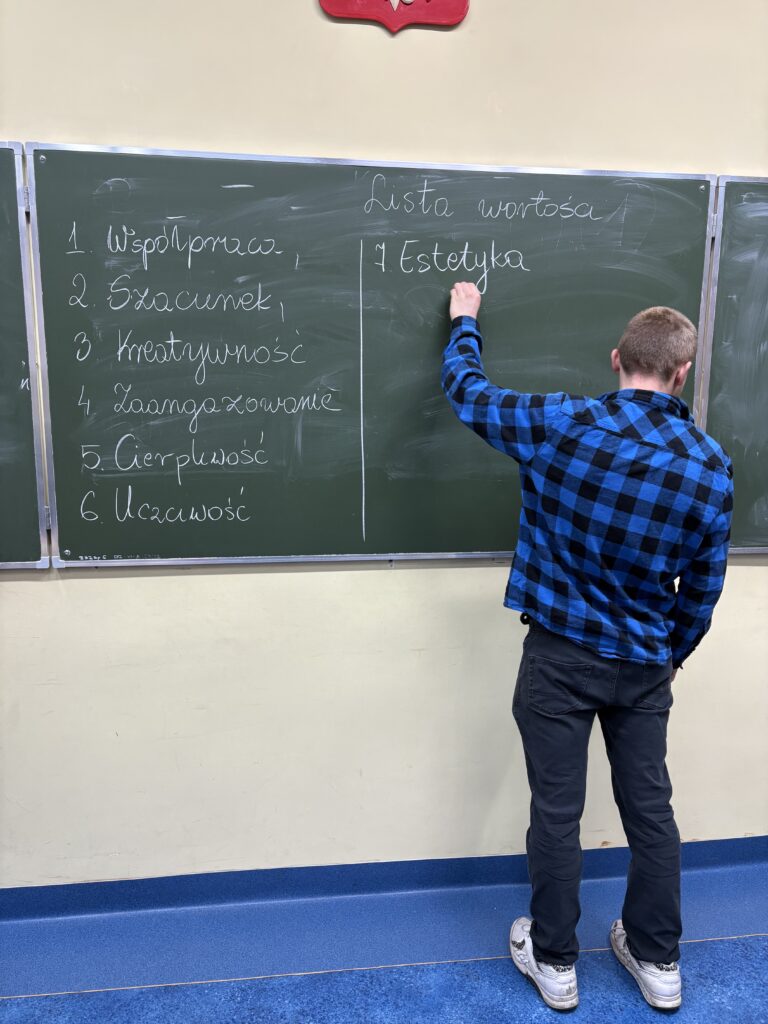 Lista wartości
1. Współpraca,
2. Szacunek,
3 Kreatywność
4. Zaangażowanie
5. Cierpliwość
6. Uczciwość
7. Estetyka